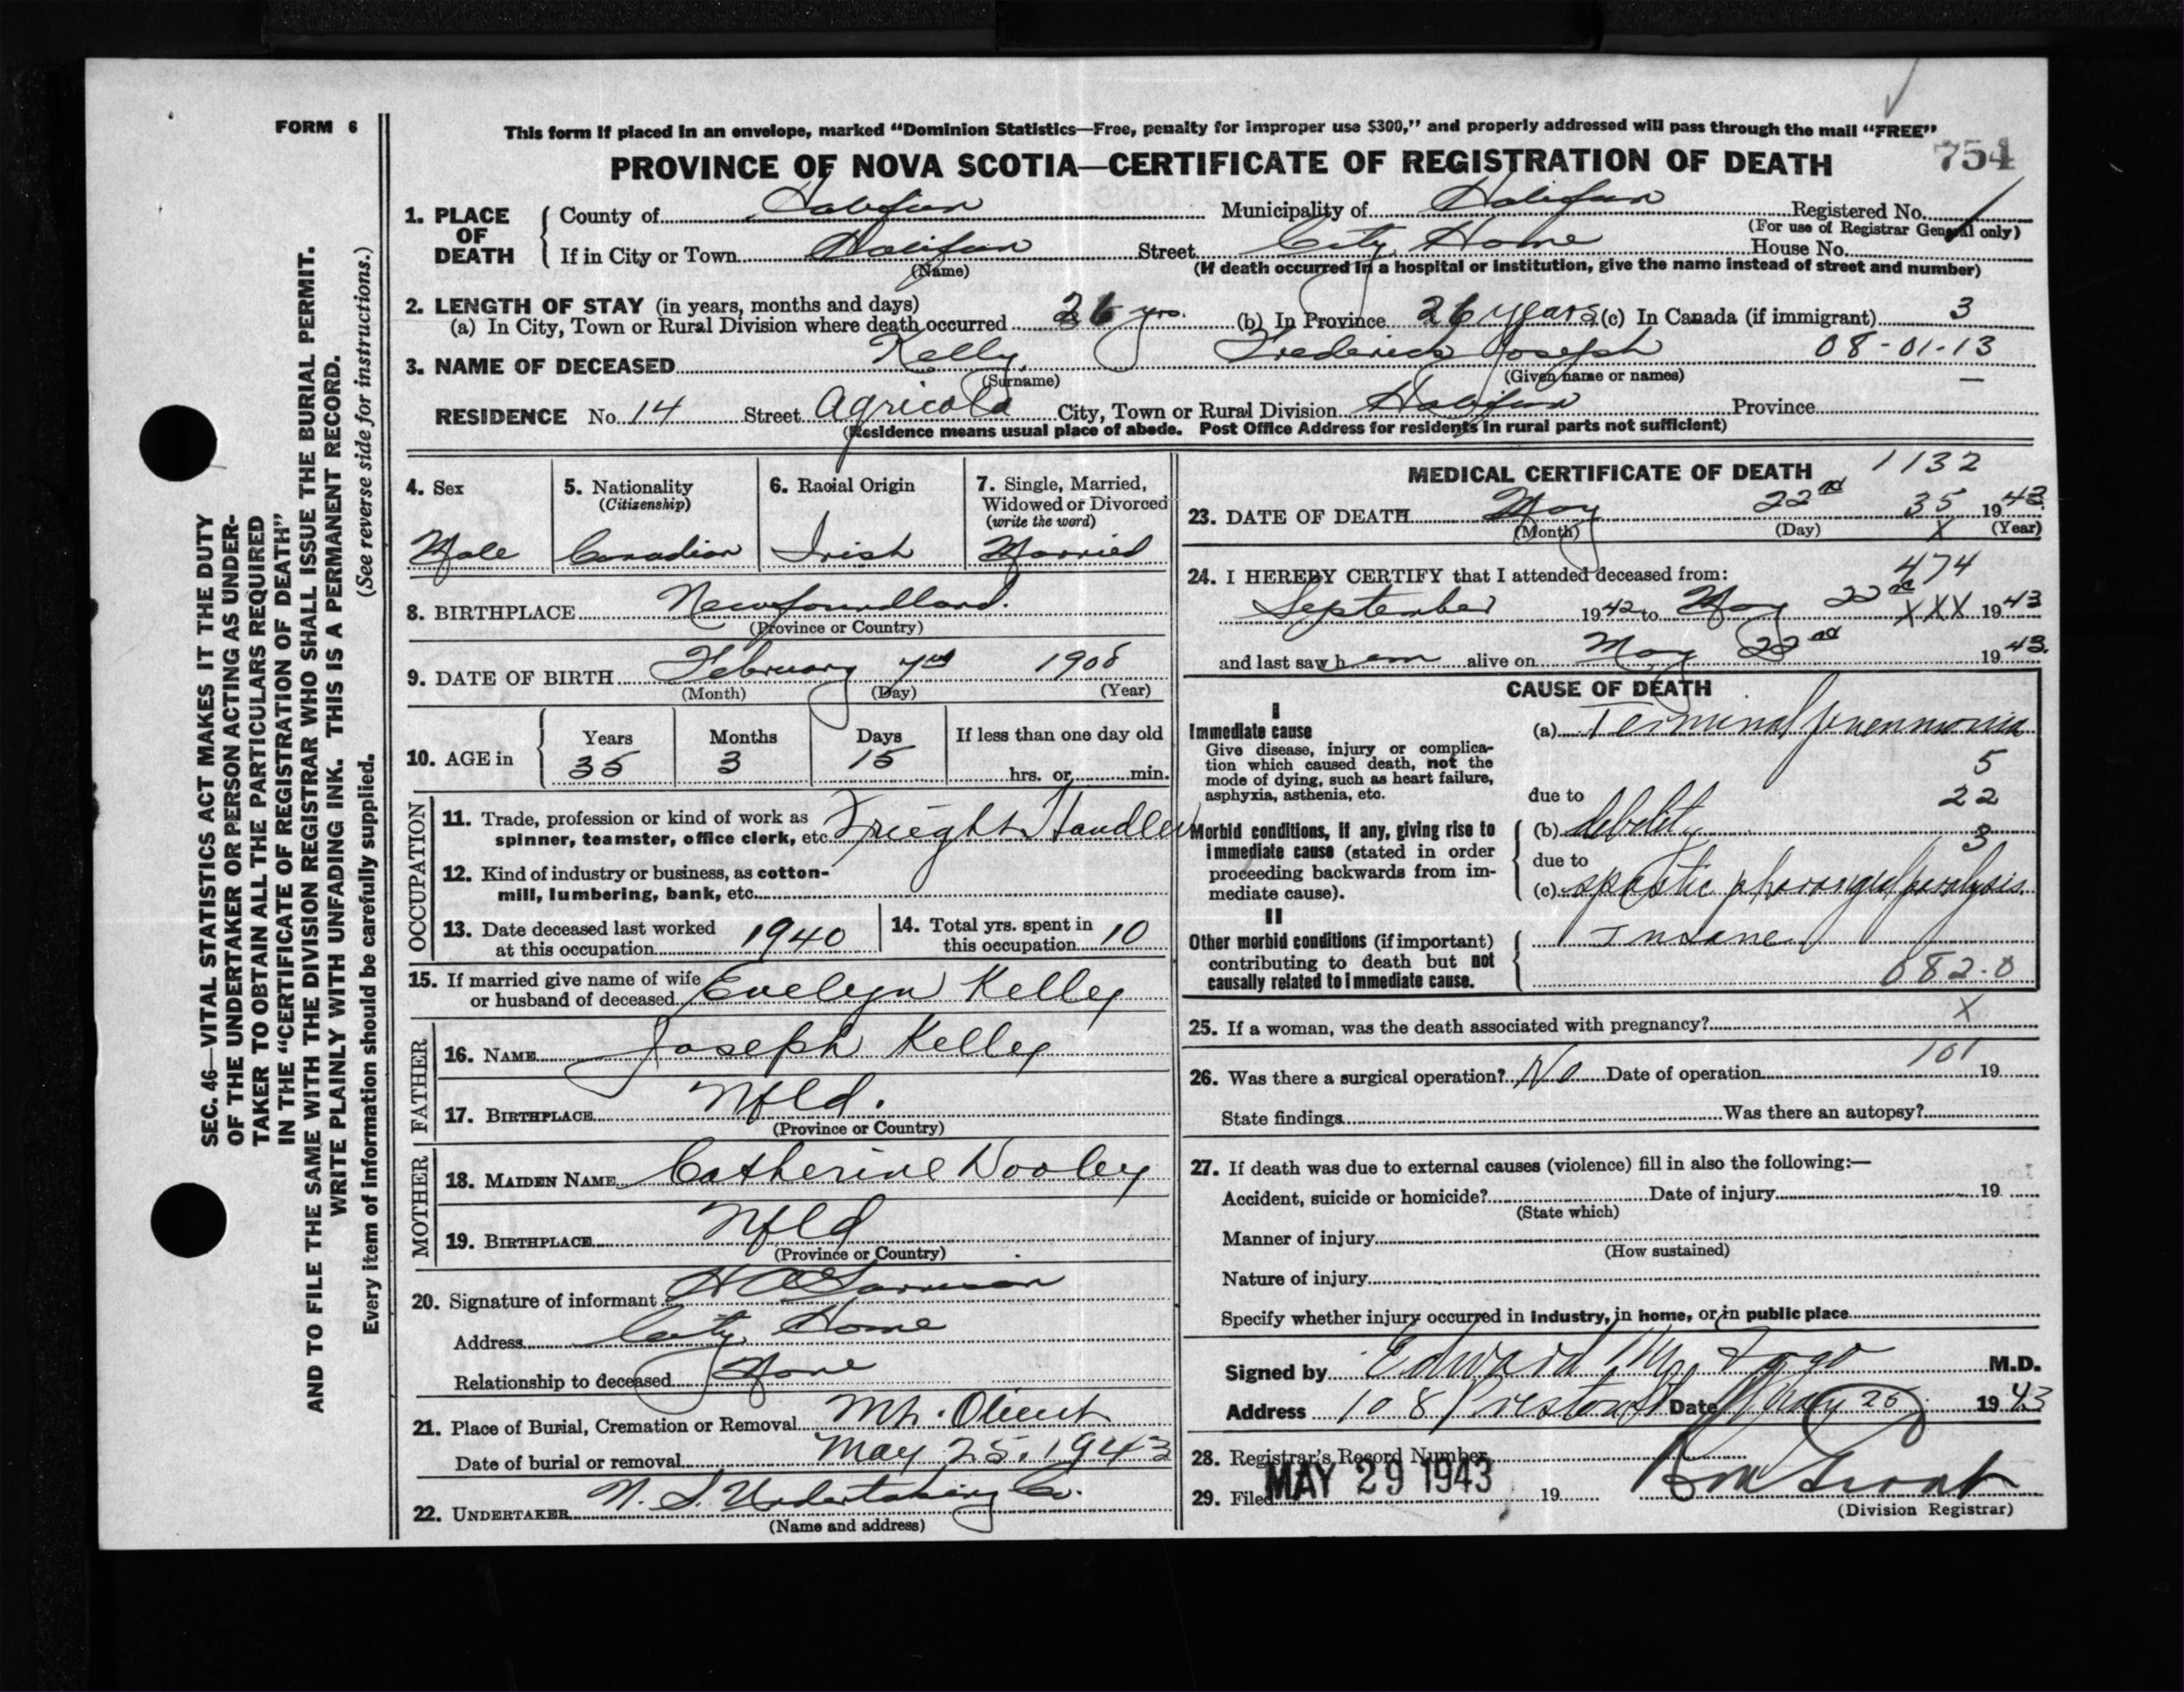 FORM 6
This form if placed in an envelope, marked “Dominion Statistics—Free, penalty for improper use $300,” and properly addressed will pass through the mail “FREE”
PROVINCE OF NOVA SCOTIA—CERTIFICATE OF REGISTRATION OF DEATH 754
1. PLACE OF DEATH
County of Halifax Municipality of Halifax Registered No.
(For use of Registrar General only)
If in City or Town Halifax Street City Home House No.
(Name) (If death occurred in a hospital or institution, give the name instead of street and number)
2. LENGTH OF STAY (in years, months and days)
(a) In City, Town or Rural Division where death occurred 26 yrs. (b) In Province 26 years (c) In Canada (if immigrant) 3
3. NAME OF DECEASED Kelly, Frederick Joseph 08-01-13
(Surname) (Given name or names)
RESIDENCE No. 14 Street Agricola City, Town or Rural Division Halifax Province
(Residence means usual place of abode. Post Office Address for residents in rural parts not sufficient)
4. Sex
Male
5. Nationality
(Citizenship)
Canadian
6. Racial Origin
Irish
7. Single, Married,
Widowed or Divorced
(write the word)
Married
8. BIRTHPLACE Newfoundland.
(Province or Country)
9. DATE OF BIRTH February 7th 1908
(Month) (Day) (Year)
10. AGE in
Years Months Days If less than one day old
35 3 15 hrs. or min.
OCCUPATION
11. Trade, profession or kind of work as
spinner, teamster, office clerk, etc. Frieght Handler
12. Kind of industry or business, as cotton-
mill, lumbering, bank, etc.
13. Date deceased last worked
at this occupation 1940
14. Total yrs. spent in
this occupation 10
15. If married give name of wife
or husband of deceased Evelyn Kelley
FATHER
16. NAME Joseph Kelley
17. BIRTHPLACE Nfld.
(Province or Country)
MOTHER
18. MAIDEN NAME Catherine Dooley
19. BIRTHPLACE Nfld
(Province or Country)
20. Signature of informant
Address City Home
Relationship to deceased None
21. Place of Burial, Cremation or Removal Mt. Olivet
Date of burial or removal May 25, 1943
22. UNDERTAKER N. S. Undertaking Co.
(Name and address)
MEDICAL CERTIFICATE OF DEATH 1132
23. DATE OF DEATH May 22nd 35 1943
(Month) (Day) X (Year)
24. I HEREBY CERTIFY that I attended deceased from: 474
September 1942 to May 22nd XXX 1943
and last saw him alive on May 22nd 1943.
CAUSE OF DEATH
I
Immediate cause
Give disease, injury or complica-
tion which caused death, not the
mode of dying, such as heart failure,
asphyxia, asthenia, etc.
(a) Terminal pneumonia
5
due to 22
Morbid conditions, if any, giving rise to
immediate cause (stated in order
proceeding backwards from im-
mediate cause).
(b) debility 3
due to
(c) spastic pharangeal paralysis
II
Other morbid conditions (if important)
contributing to death but not
causally related to immediate cause.
Insane
082.0
25. If a woman, was the death associated with pregnancy? X
101
26. Was there a surgical operation? No Date of operation 19
State findings Was there an autopsy?
27. If death was due to external causes (violence) fill in also the following:—
Accident, suicide or homicide? Date of injury 19
(State which)
Manner of injury
(How sustained)
Nature of injury
Specify whether injury occurred in industry, in home, or in public place
Signed by Edward M. M.D.
Address 108 Preston St Date May 25 1943
28. Registrar's Record Number
29. Filed MAY 29 1943 19
(Division Registrar)
SEC. 46—VITAL STATISTICS ACT MAKES IT THE DUTY
OF THE UNDERTAKER OR PERSON ACTING AS UNDER-
TAKER TO OBTAIN ALL THE PARTICULARS REQUIRED
IN THE “CERTIFICATE OF REGISTRATION OF DEATH”
AND TO FILE THE SAME WITH THE DIVISION REGISTRAR WHO SHALL ISSUE THE BURIAL PERMIT.
WRITE PLAINLY WITH UNFADING INK. THIS IS A PERMANENT RECORD.
Every item of information should be carefully supplied. (See reverse side for instructions.)